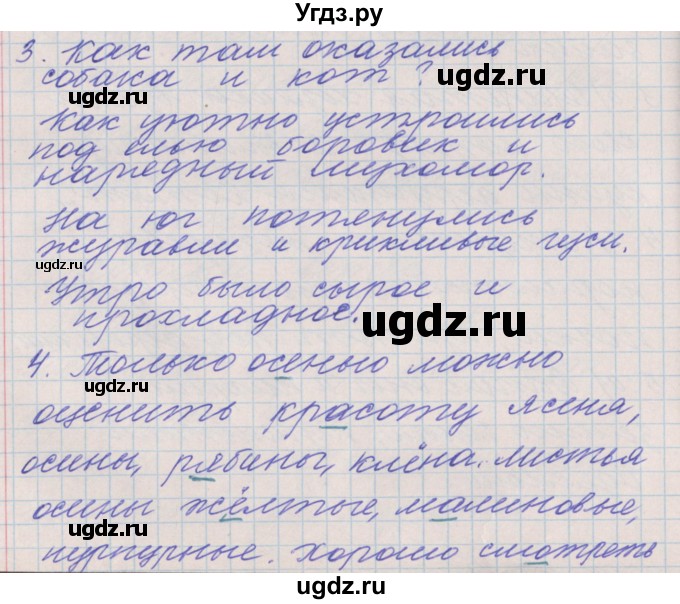 Угдз.ру
3. Как там оказались
собака и кот?
ugdz.ru
ugdz.ru
Как уютно устроились
под елью боровик и
нарядный мухомор.
ugdz.ru
На юг потянулись
журавли и крикливые гуси.
ugdz.ru
Утро было сырое и
прохладное.
ugdz.ru
4. Только осенью можно
ugdz.ru
оценить красоту ясеня,
осины, рябины, клёна. Листья
ugdz.ru
осины жёлтые, малиновые,
ugdz.ru
пурпурные. Хорошо смотреть
ugdz.ru